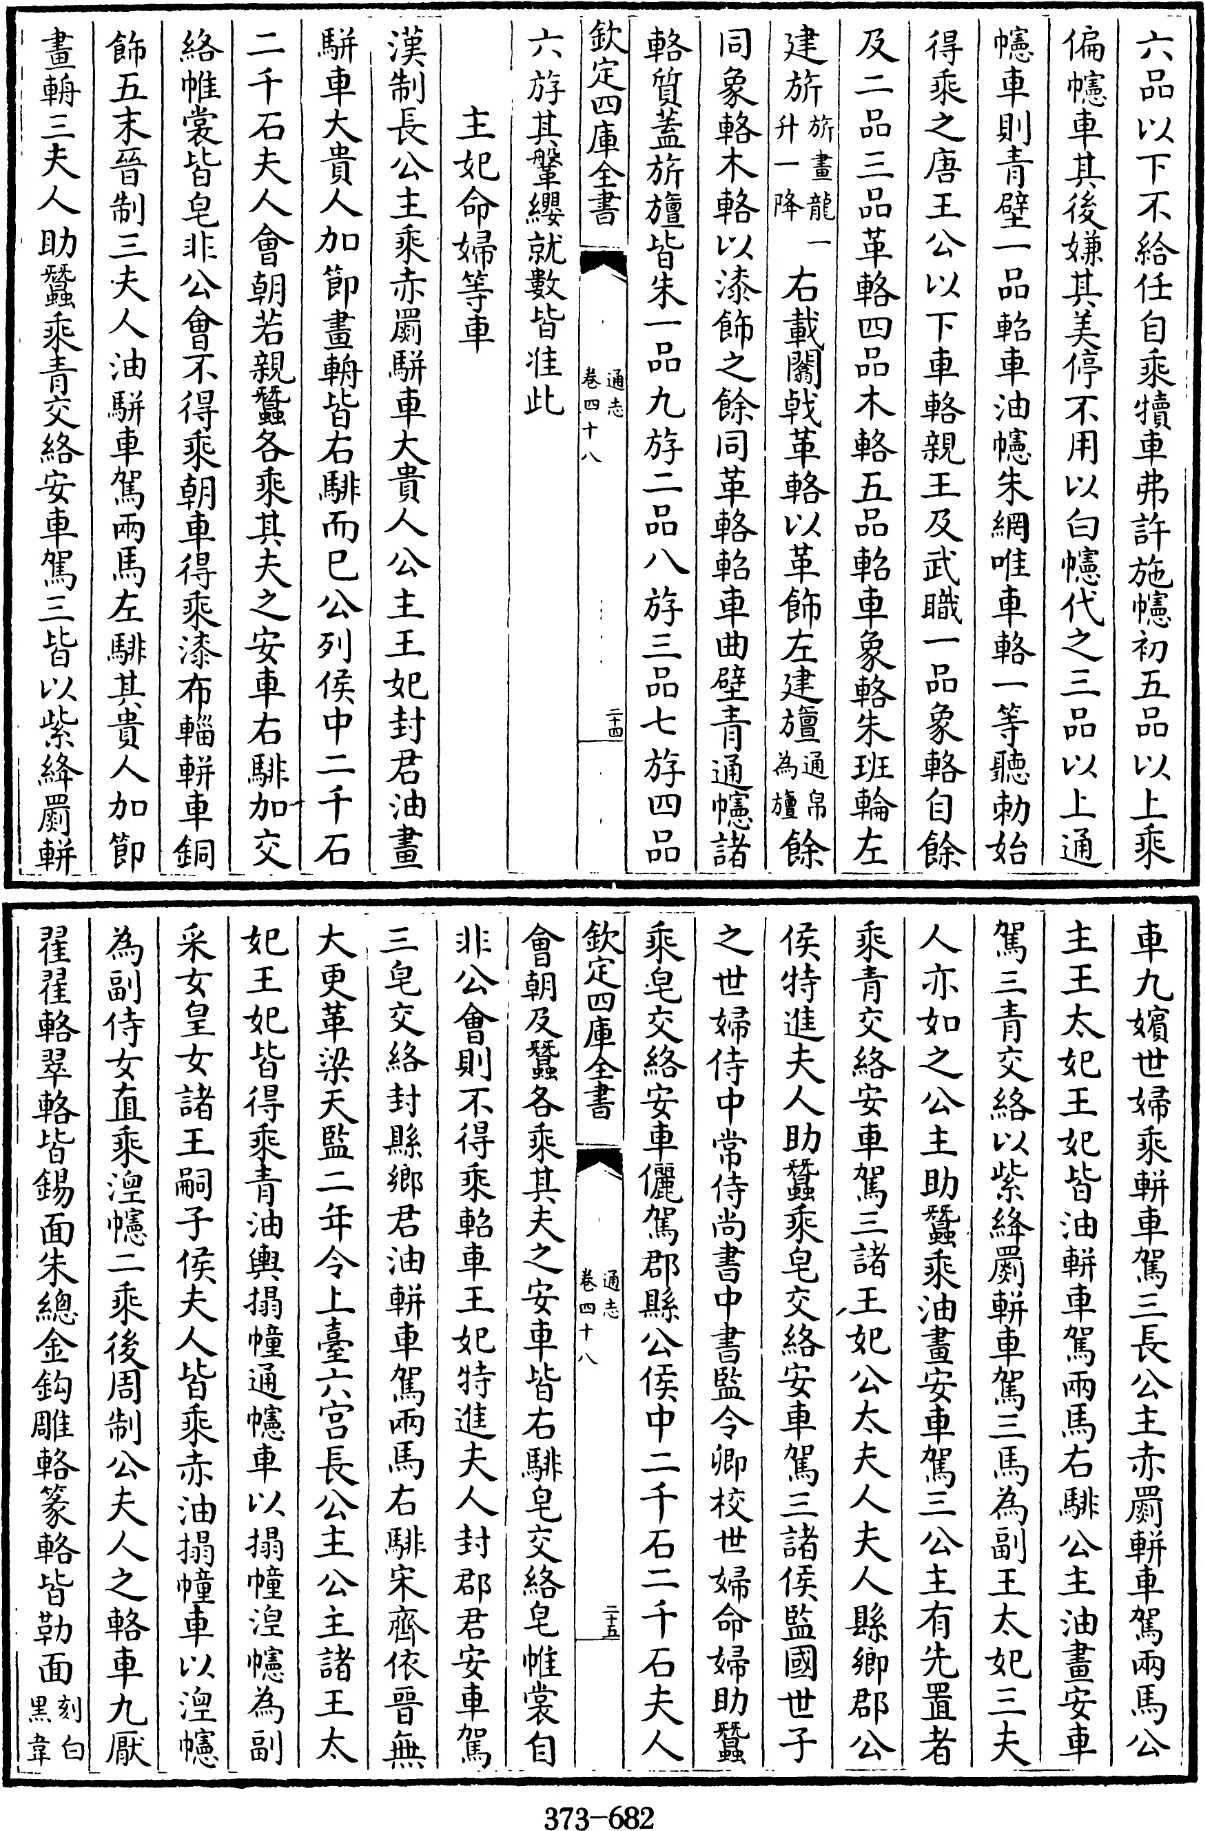 六品以下不給任自乘犢車弗許施幰初五品以上乘
偏幰車其後嫌其美停不用以白幰代之三品以上通
幰車則青壁一品軺車油幰朱網唯車輅一等聽勅始
得乘之唐王公以下車輅親王及武職一品象輅自餘
及二品三品革輅四品木輅五品軺車象輅朱班輪左
建旂旂畫龍一升一降右載闟戟革輅以革飾左建旜通帛為旜餘
同象輅木輅以漆飾之餘同革輅軺車曲壁青通幰諸
輅質蓋旂旜皆朱一品九斿二品八斿三品七斿四品
欽定四庫全書
通志
卷四十八
二十四
六斿其鞶纓就數皆准此
主妃命婦等車
漢制長公主乘赤罽駢車大貴人公主王妃封君油畫
駢車大貴人加節畫輈皆右騑而已公列侯中二千石
二千石夫人會朝若親蠶各乘其夫之安車右騑加交
絡帷裳皆皂非公會不得乘朝車得乘漆布輜軿車銅
飾五末晉制三夫人油駢車駕兩馬左騑其貴人加節
畫輈三夫人助蠶乘青交絡安車駕三皆以紫絳罽軿
車九嬪世婦乘軿車駕三長公主赤罽軿車駕兩馬公
主王太妃王妃皆油軿車駕兩馬右騑公主油畫安車
駕三青交絡以紫絳罽軿車駕三馬為副王太妃三夫
人亦如之公主助蠶乘油畫安車駕三公主有先置者
乘青交絡安車駕三諸王妃公太夫人夫人縣鄉郡公
侯特進夫人助蠶乘皂交絡安車駕三諸侯監國世子
之世婦侍中常侍尚書中書監令卿校世婦命婦助蠶
乘皂交絡安車儷駕郡縣公侯中二千石二千石夫人
欽定四庫全書
通志
卷四十八
二十五
會朝及蠶各乘其夫之安車皆右騑皂交絡皂帷裳自
非公會則不得乘軺車王妃特進夫人封郡君安車駕
三皂交絡封縣鄉君油軿車駕兩馬右騑宋齊依晉無
大更革梁天監二年令上臺六宮長公主公主諸王太
妃王妃皆得乘青油輿搨幢通幰車以搨幢湼幰為副
采女皇女諸王嗣子侯夫人皆乘赤油搨幢車以湼幰
為副侍女直乘湼幰二乘後周制公夫人之輅車九厭
翟翟輅翠輅皆錫面朱總金鈎雕輅篆輅皆勒面刻白黑韋
373-682